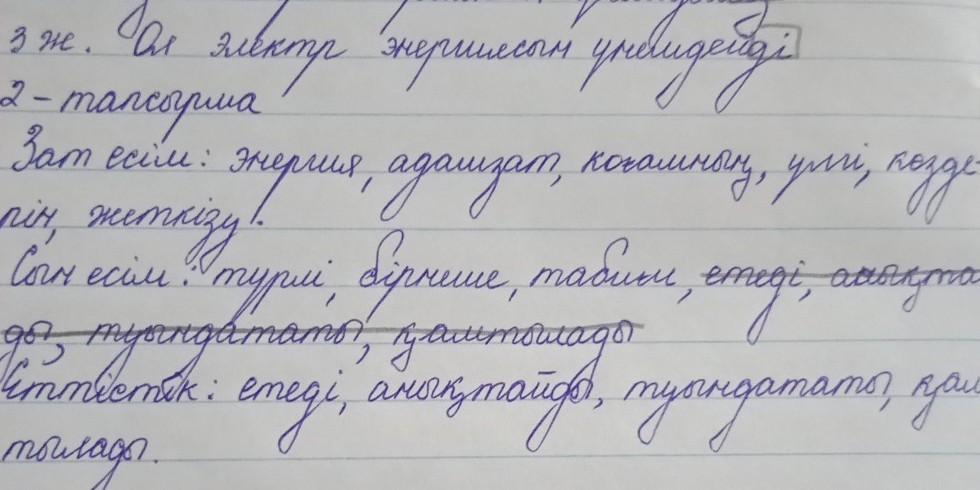 3 ж. Ол электр энергиясын үнемдейді
2-тапсырма
Зат есім: энергия, адамзат, коғамның, үлгі, көзде-
рін, жеткізу.
Сын есім: түрлі, бірнеше, табиғи, етеді, анықта
ды, туындататы, қамтылады
Етістік: етеді, анықтайды, туындататы, қам
тылады.